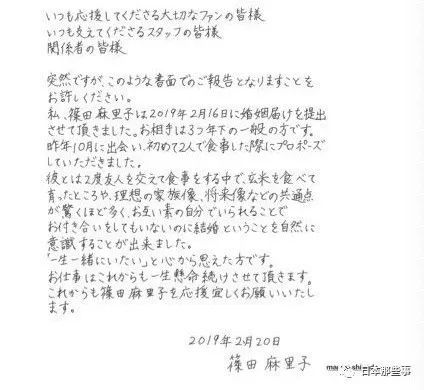 いつも応援してくださる大切なファンの皆様
いつも支えてくださるスタッフの皆様
関係者の皆様
突然ですが、このような書面でのご報告となりますことを
お許しください。
私、篠田麻里子は2019年2月16日に婚姻届けを提出
させて頂きました。お相手は3つ年下の一般の方です。
昨年10月に出会い、初めて2人で食事した際にプロポーズ
していただきました。
彼とは2度友人を交えて食事をする中で、玄米を食べて
育ったところや、理想の家族像、将来像などの共通点
が驚くほど多く、お互い素の自分でいられることで
お付き合いをしてもいないのに結婚ということを自然に
意識することが出来ました。
「一生一緒にいたい」と心から思えた方です。
お仕事はこれからも一生懸命続けさせて頂きます。
これからも篠田麻里子を応援宜しくお願いいたし
ます。
2019年2月20日
篠田 麻里子
日本那些事